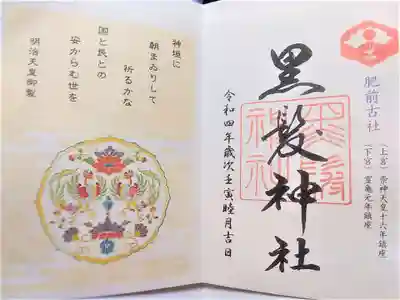 肥前古社
(上宮)崇神天皇十六年鎮座
(下宮)霊亀元年鎮座
黒髪神社
令和四年歳次壬寅睦月吉日
神垣に
朝まゐりして
祈るかな
国と民との
安からむ世を
明治天皇御製